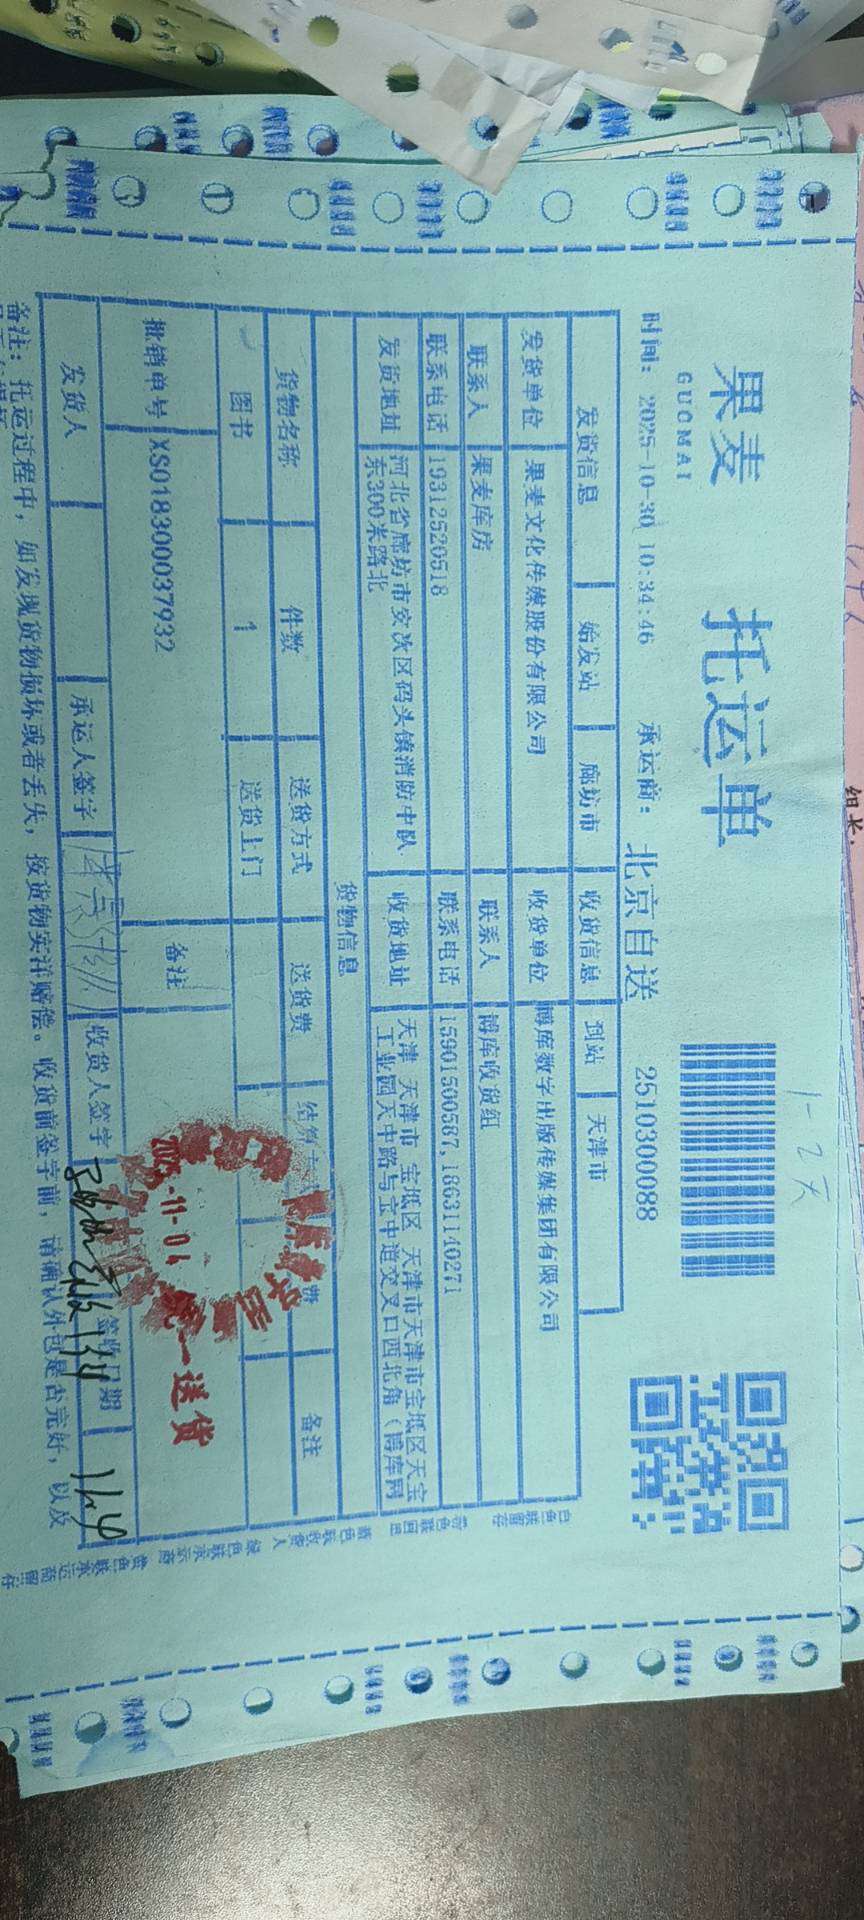 果麦
GUOMAI
托运单
1-2天
时间: 2025-10-30 10:34:46 承运商: 北京自送 2510300088
发货信息 始发站 廊坊市 收货信息 到站 天津市
发货单位 果麦文化传媒股份有限公司 收货单位 博库数字出版传媒集团有限公司
联系人 果麦库房 联系人 博库收货组
联系电话 19312520518 联系电话 15901500587,18631140271
发货地址 河北省廊坊市安次区码头镇消防中队东300米路北 收货地址 天津 天津市 宝坻区 天津市天津市宝坻区天宝工业园天中路与宝中道交叉口西北角(博库网
货物信息
货物名称 件数 送货方式 送货费 备注
图书 1 送货上门
批销单号 XS018300037932 备注
发货人 承运人签字 收货人签字 签收日期 11.4
2025-11-04
统一送货
备注: 托运过程中, 如发现货物损坏或者丢失, 按货物实洋赔偿。收货前签字前, 请确认外包是否完好, 以及
组长.